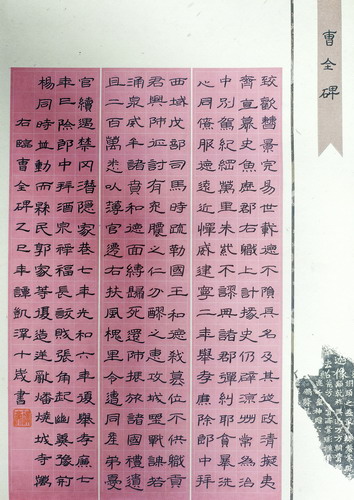 曹全碑
致歡曹景完易世載德不隕其名及其從政清擬夷
齊直慕史魚歷郡右職上計掾史仍辟涼州常為治
中別駕紀綱萬里朱紫不謬典諸郡彈糾耶貪暴洗
心同僚服德遠近憚威建寧二年舉孝廉除郎中拜
西域戊部司馬時疏勒國王和德弒篡位不供職貢
君興師征討有吮膿之仁分醪之惠攻城野戰謀若
涌泉威牟諸賁和德面縛歸死還師振旅諸國禮遺
且二百萬悉以薄官遷右扶風槐里令遭同產弟憂
官續遇禁冈潛隱家巷七年光和六年復舉孝廉七
年巳除郎中拜酒泉祿福長訞賊張角起幽冀豫荊
楊同時並動而縣民郭家等復造逆亂燔燒城寺萬
右臨曹全碑乙巳年譚凱澤十歲書